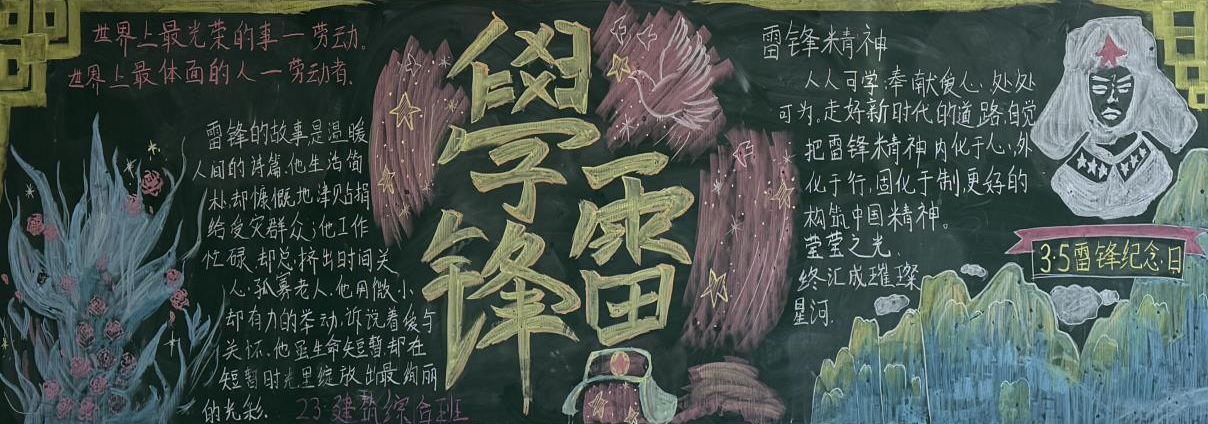 世界上最光荣的事一劳动。
世界上最体面的人一劳动者.
雷锋的故事是温暖
人间的诗篇.他生活简
朴.却慷慨地津贴捐
给受灾群众;他工作
忙碌.却总.挤出时间关
心.孤寡老人.他用微小
却有力的举动.诉说着爱与
关怀.他虽生命短暂.却在
短暂时光里绽放出最绚丽
的光彩.
23.建筑综合班
學雷
锋
雷锋精神
人人可学;奉献爱心,处处
可为。走好新时代的道路.自觉
把雷锋精神内化于心,外
化于行,固化于制,更好的
构筑中国精神。
莹莹之光,
终汇成璀璨
星河.
3·5雷锋纪念日